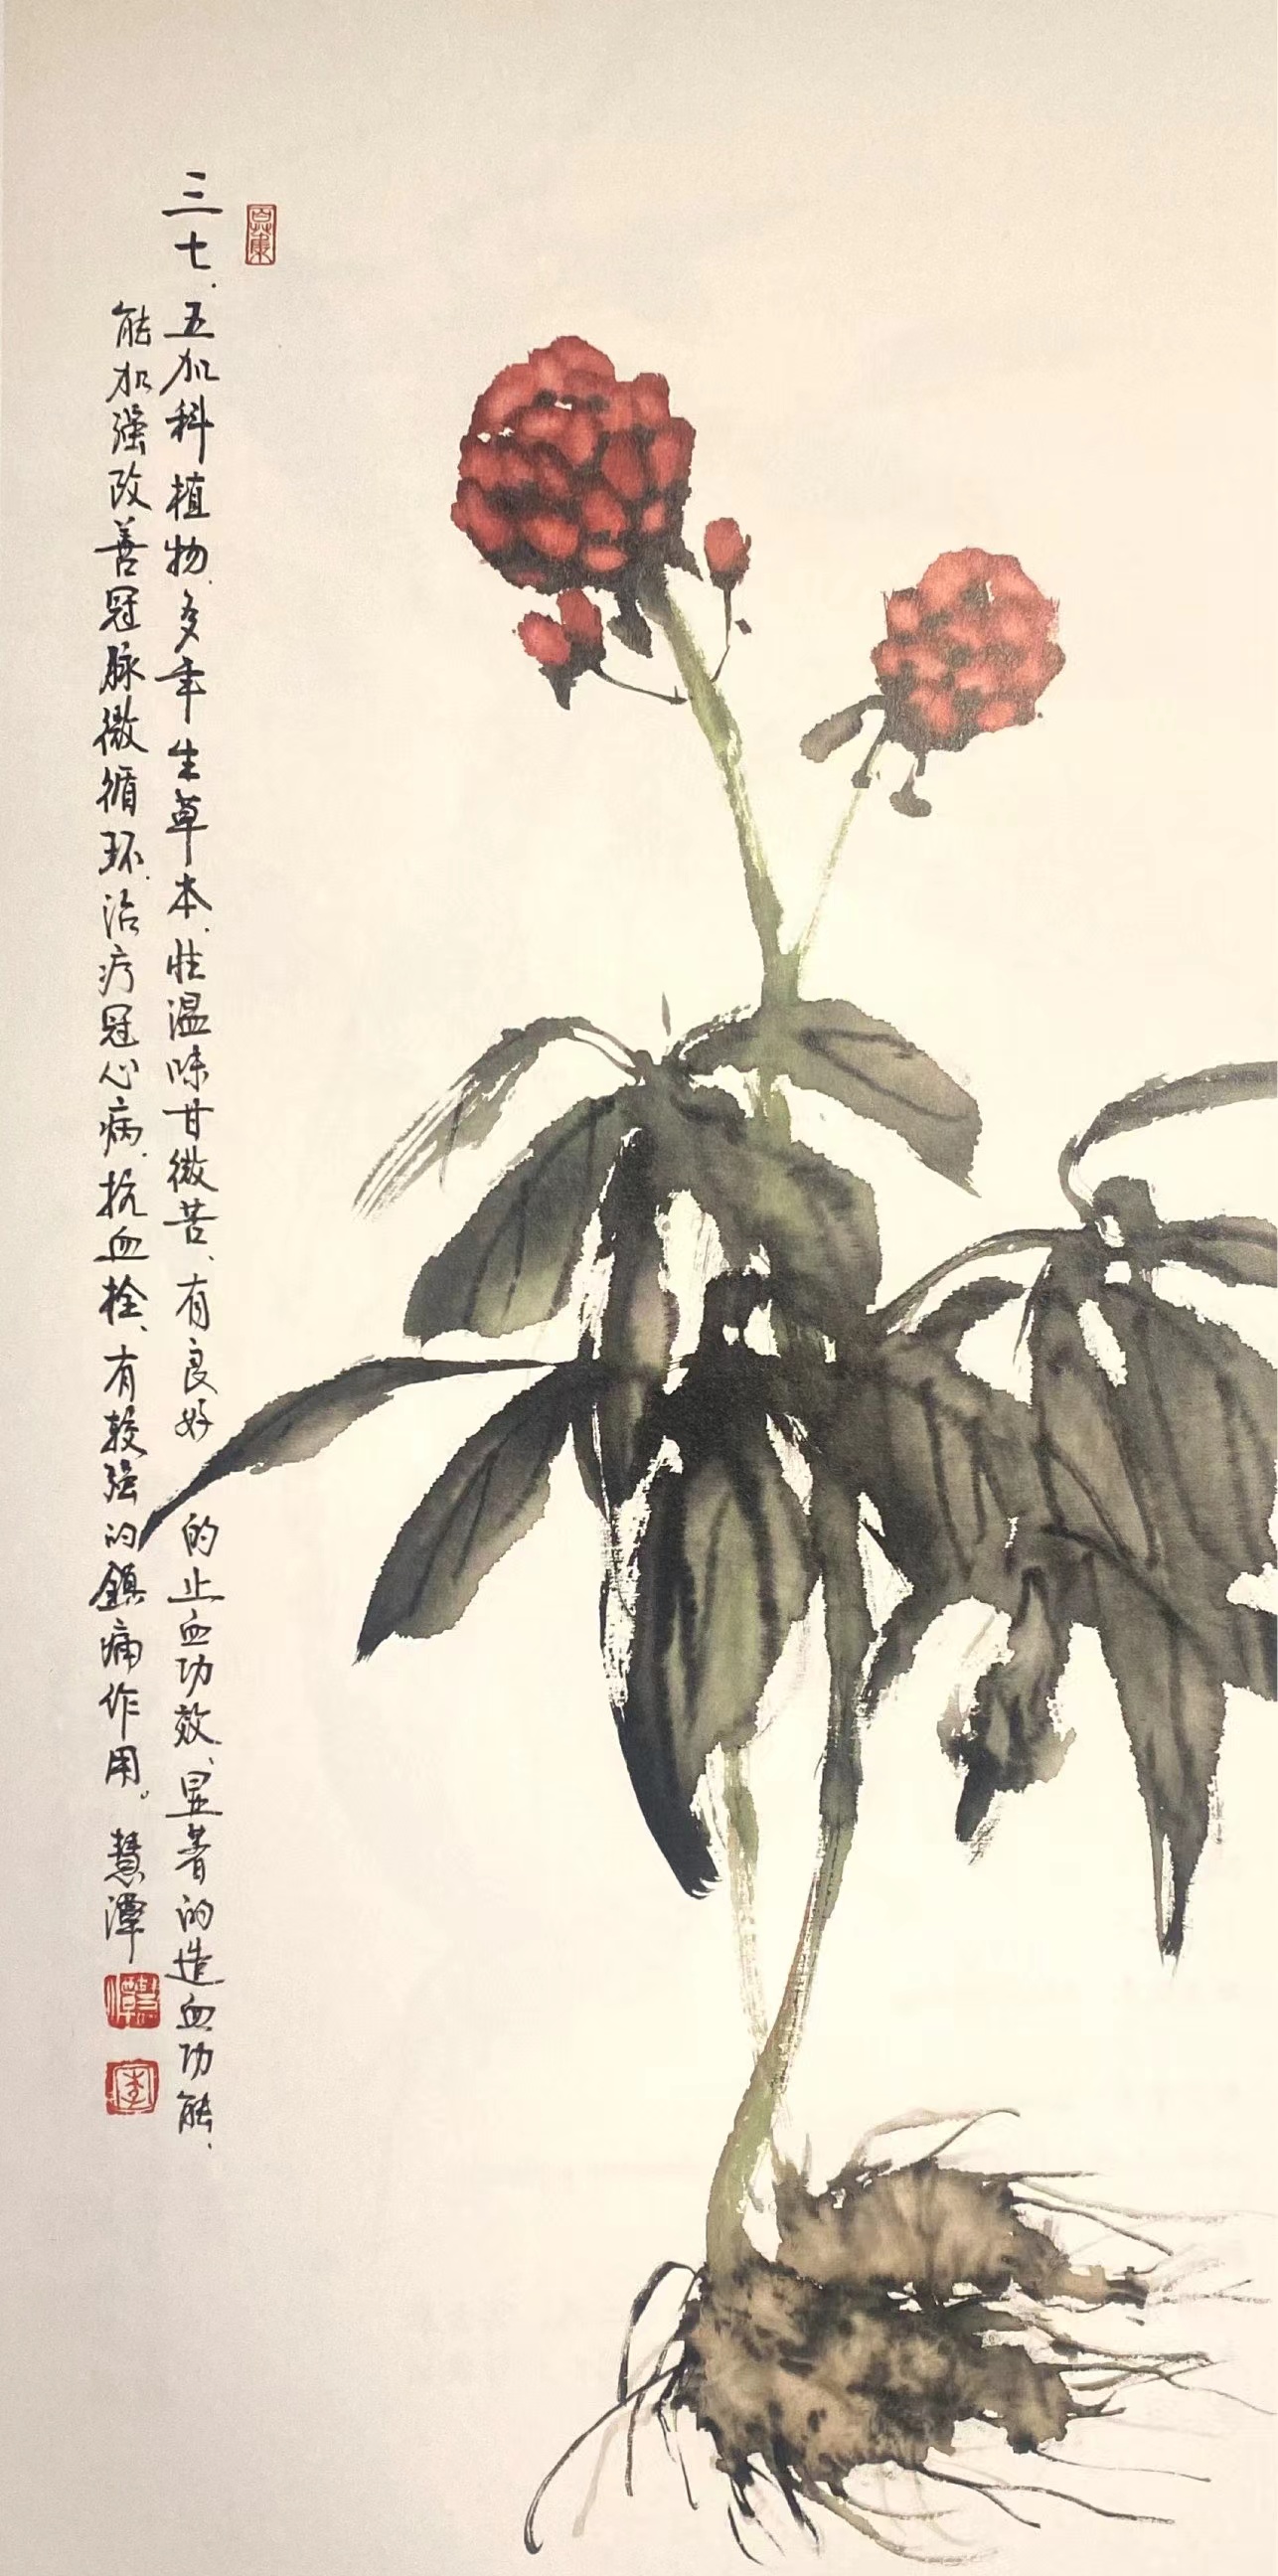 三七、五加科植物、多年生草本、性温味甘微苦、有良好的止血功效、显著的造血功能、
能加强改善冠脉微循环、治疗冠心病、抗血栓、有较强的鎮痛作用。慧潭
李